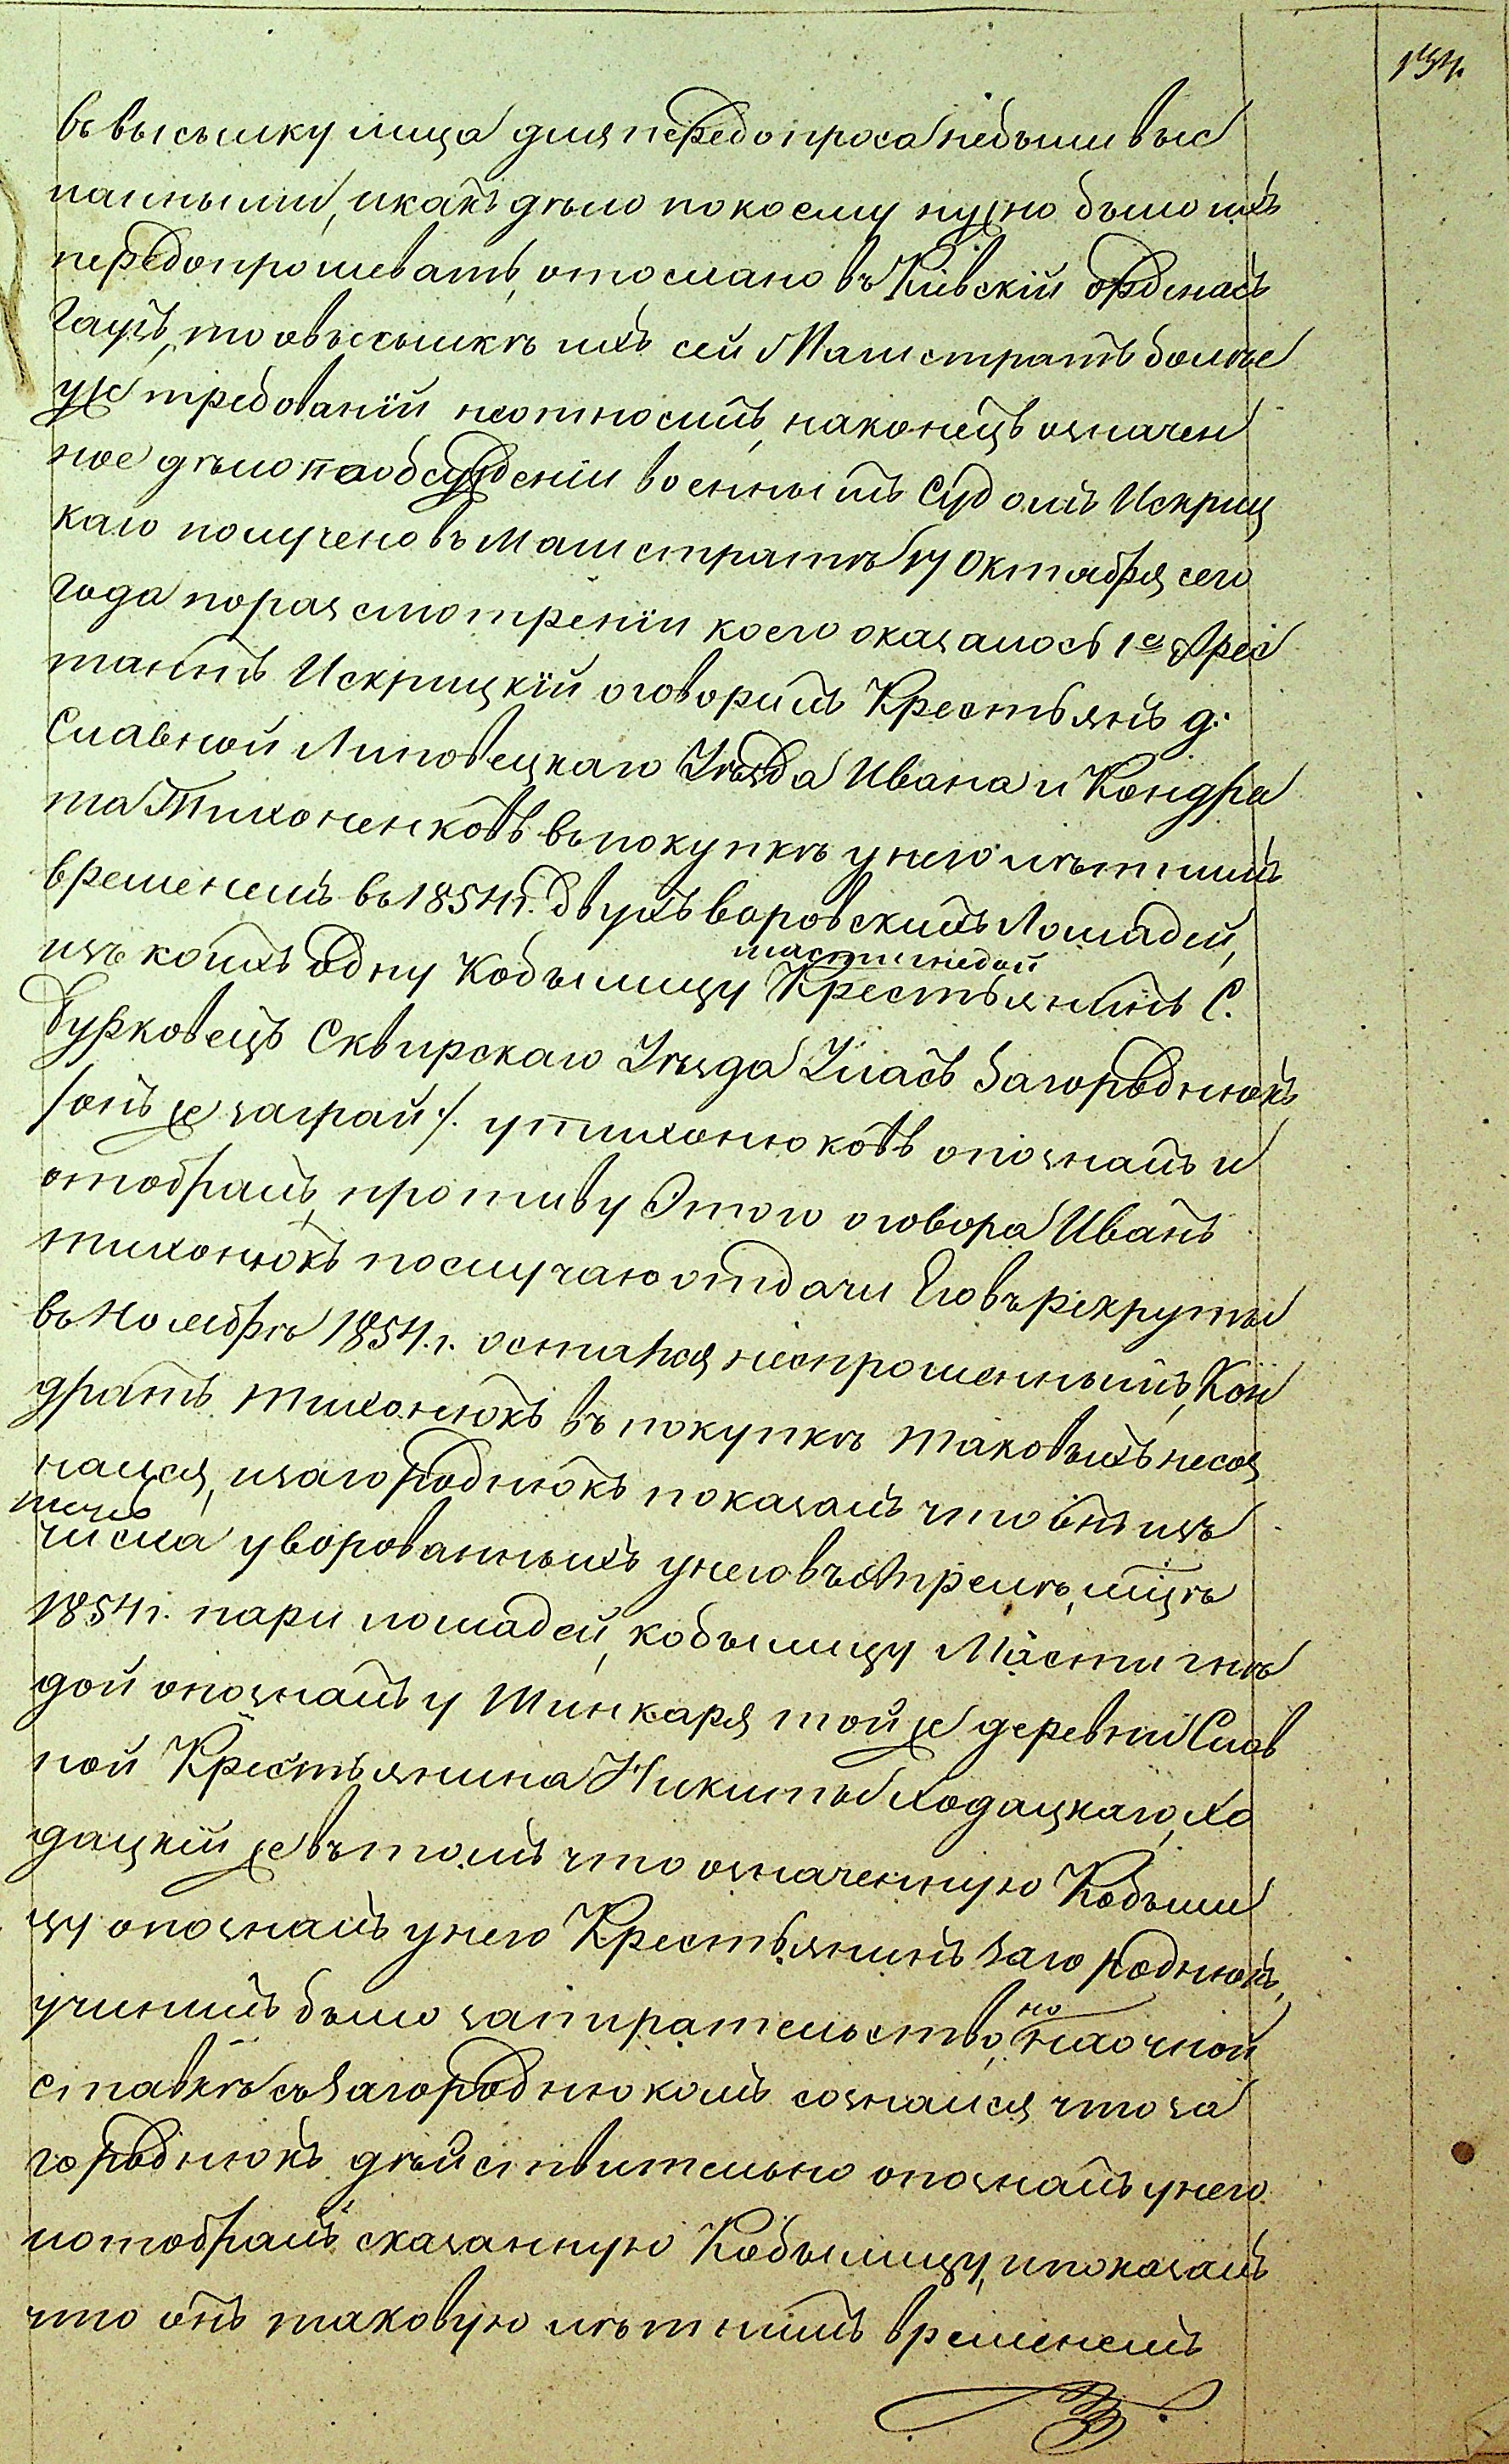 134.
въ высылку лица для передопроса небыли выс
ланными, и какъ дѣло по коему нужно было ихъ
передопрошевать, отослано въ Кіевскій ордонасъ
гаузъ, то о высылкѣ ихъ сей Магистратъ болѣе
уже требованій неотноситъ, наконецъ означен
ное дѣло по обсужденіи военнымъ Судомъ Искриц
каго получено въ Магистратѣ 17 Октября сего
года по разсмотреніи коего оказалось 1е Арес
тантъ Искрицкій оговорилъ Крестьянъ д.
Славной Липовецкаго Уѣзда Ивана и Кондра
та Тихоненковъ въ покупкѣ у него лѣтнимъ
временемъ въ 1854 г. двухъ воровскихъ Лошадей,
масти гнедой
изъ коихъ одну Кобылицу Крестьянинъ С.
Бурковецъ Сквирскаго Уѣзда Уласъ Загороднюкъ
/онъ же заграй/. у тихонюковъ опозналъ и
отобралъ, противу Этого оговора Иванъ
тихонюкъ по случаю отдачи Его въ рекруты
въ Ноябрѣ 1854 г. остался неспрошенный, Кон
дратъ тихонюкъ въ покупкѣ таковыхъ несоз
нался, и загороднюкъ показалъ что онъ изъ
числа уворованныхъ у него въ Апрелѣ мцѣ
1854 г. пари лошадей, кобылицу Масти гнѣ
дой опозналъ у Шинкаря той же деревни Слав
ной Крестьянина Никиты Ходацкаго, Хо
дацкій же въ томъ что означенную Кобыли
цу опозналъ у него Крестьянинъ Загороднюкъ,
но
учинилъ было запирательство, на очной
ставкѣ съ Загороднюкомъ сознался что за
городнюкъ дѣйствительно опозналъ у него
и отобралъ сказанную Кобылицу, и показалъ
что онъ таковую лѣтнимъ временемъ